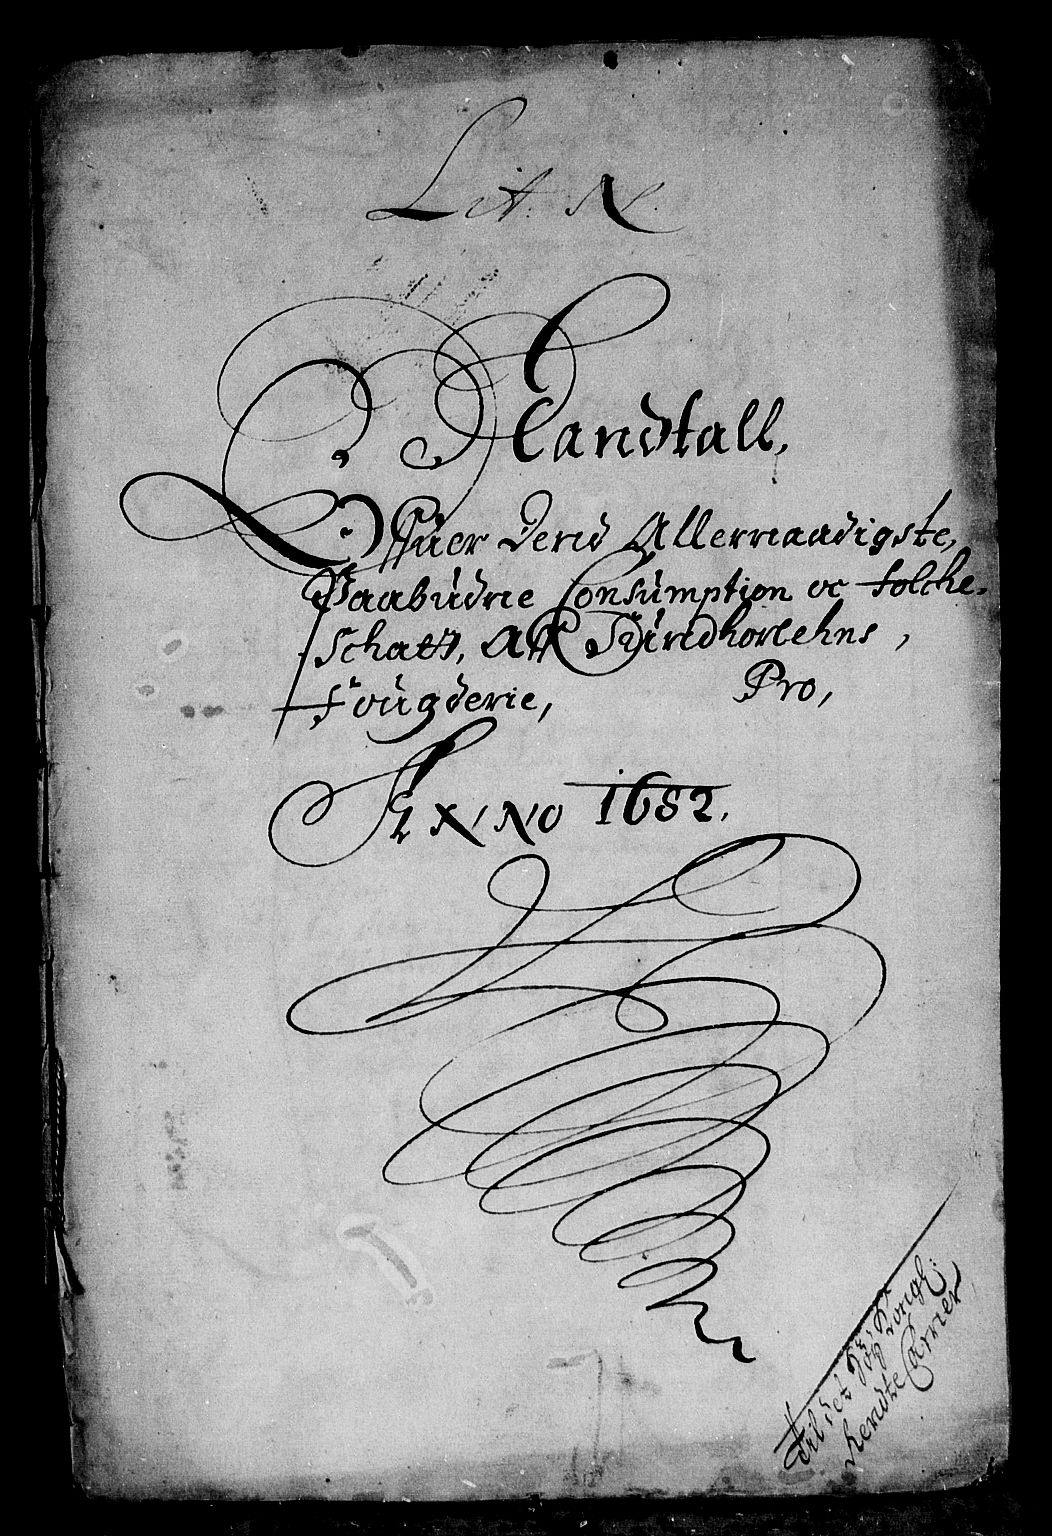 Lit: N:
Mandtall,
Offuer dend Allernaadigste,
Paabudne Consumption oc folche-
schatt, Aff Nummedhorlehns,
fougderie, Pro,
ANNO 1682.
Til det Høy Kongl:
Rendte Cammer